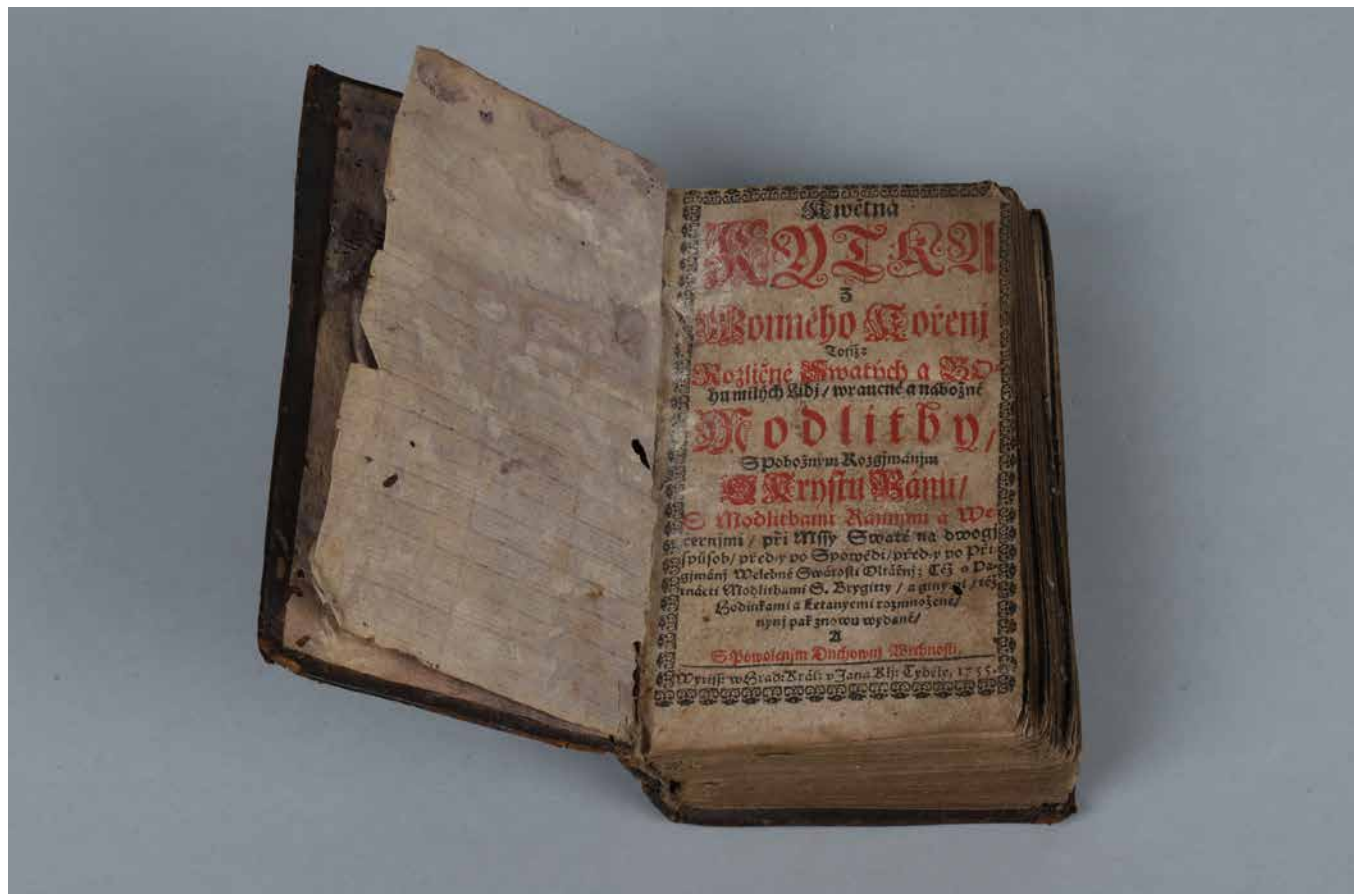 Kwětná
KYTKA
Z
Wonného Kořenj
Totiž:
Rozličné Swatých a BO-
hu milých Lidj / wraucné a nábožné
Modlitby /
S Pobožným Rozgjmánjm
O Krystu Pánu /
S Modlitbami Rannjmi a We-
černjmi / při Mssy Swaté na dwogj
spůsob / před y po Spowědi / před y po Při-
gjmánj Welebné Swátosti Oltářnj; Též o Pa-
tnácti Modlitbami S. Brygitty / a ginými / též
Hodinkami a Letanyemi rozmnožené /
nynj pak znowu wydané /
A
S Powolenjm Duchownj Wrchnosti.
w Hradcy Král: v Jana Klj: Tybéle, 1755.